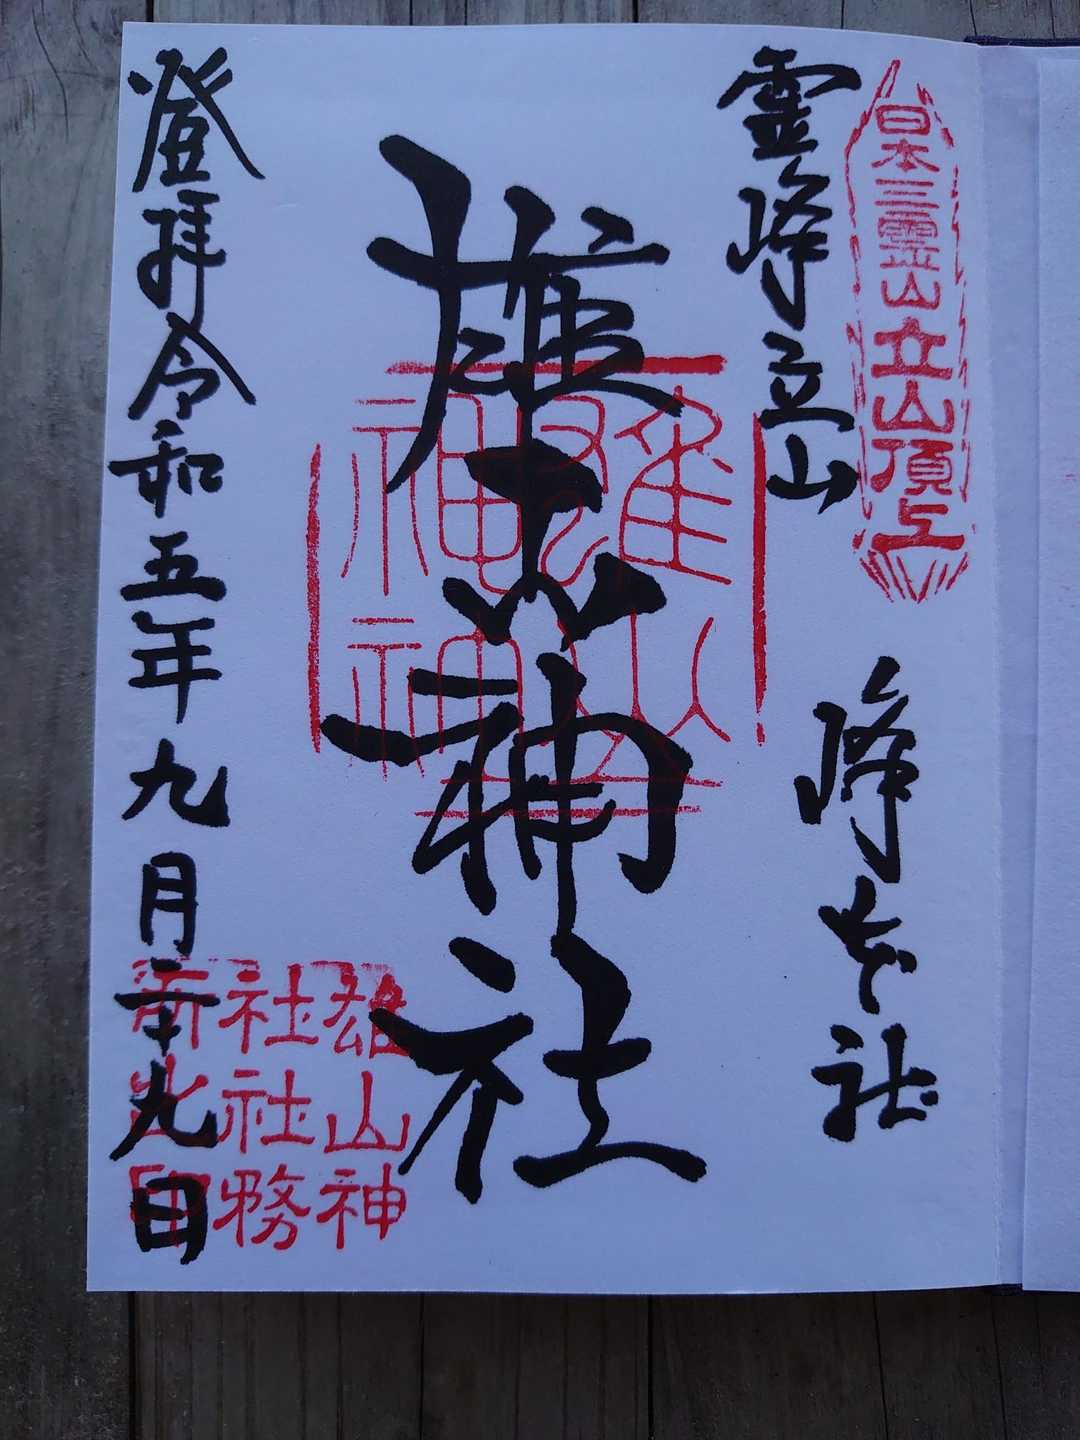 日本三霊山立山頂上
霊峰立山
峰本社
雄山神社
登拝令和五年九月二十九日
雄山神
社社務
所之印